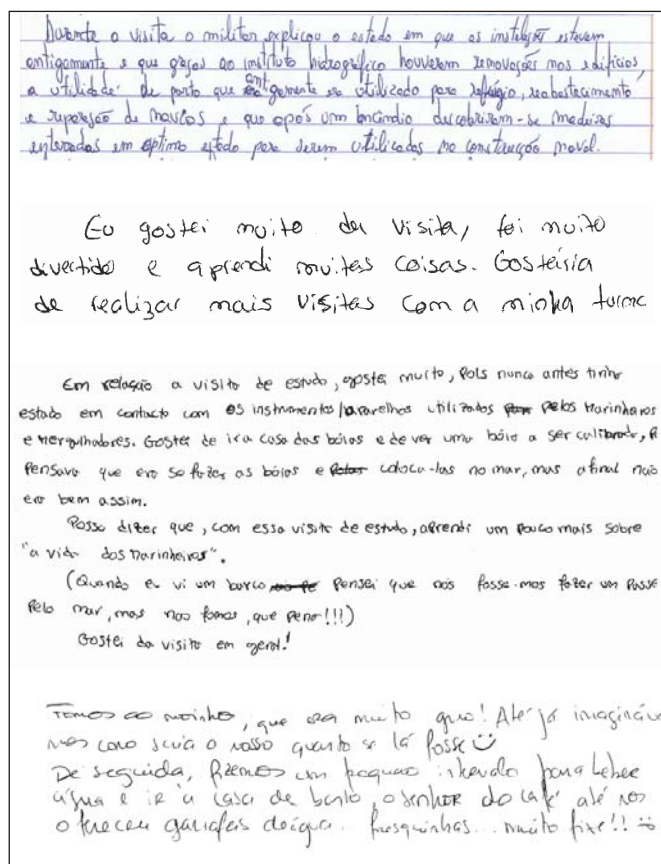 Durante a visita o militar explicou o estado em que as instalações estavam
antigamente e que graças ao instituto hidrográfico houveram renovações nos edifícios,
a utilidade do porto que antigamente era utilizado para refúgio, reabastecimento
e reparação de navios e que após um incêndio descobriram-se madeiras
enterradas em óptimo estado para serem utilizadas na construção naval.
Eu gostei muito da visita, foi muito
divertido e aprendi muitas coisas. Gostaria
de realizar mais visitas com a minha turma
Em relação a visita de estudo, gostei muito, Pois nunca antes tinha
estado em contacto com os instrumentos/aparelhos utilizados pelos Marinheiros
e mergulhadores. Gostei de ir a casa das bóias e de ver uma bóia a ser calibrada, P
Pensava que era so fazer as bóias e coloca-las no mar, mas afinal não
era bem assim.
Posso dizer que, com essa visita de estudo, aprendi um Pouco mais sobre
"a vida dos Marinheiros".
(Quando eu vi um barco pensei que nós fosse-mos fazer um Passe
Pelo mar, mas nao fomos, que pena!!!)
Gostei da visita em geral!
Fomos ao moinho, que era muito giro! Até já imagináva
mos como seria o nosso quarto se lá fosse
De seguida, fizemos um pequeno intervalo para beber
água e ir à casa de banho, o senhor do café até nos
ofereceu garrafas de água fresquinhas... muito fixe!!